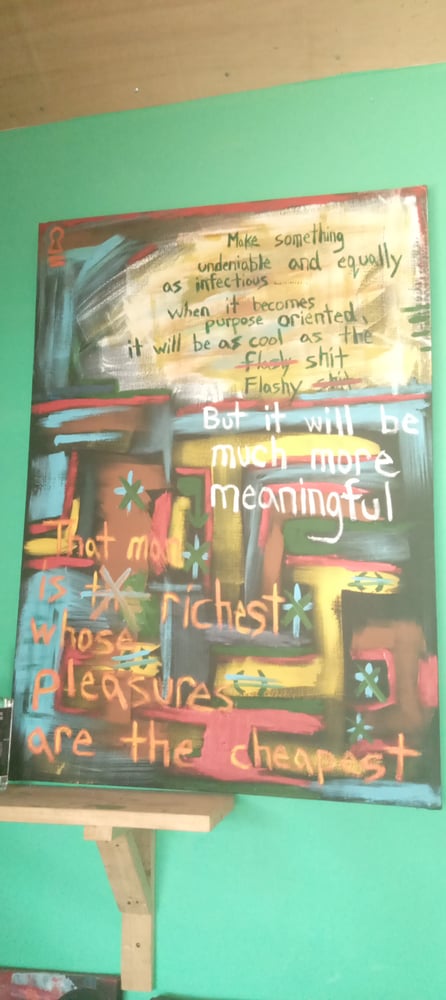 Make something
undeniable and equally
as infectious
when it becomes
purpose oriented,
it will be as cool as the
flashy shit
Flashy shit
But it will be
much more
meaningful
That man
is the richest
whose
pleasures
are the cheapest